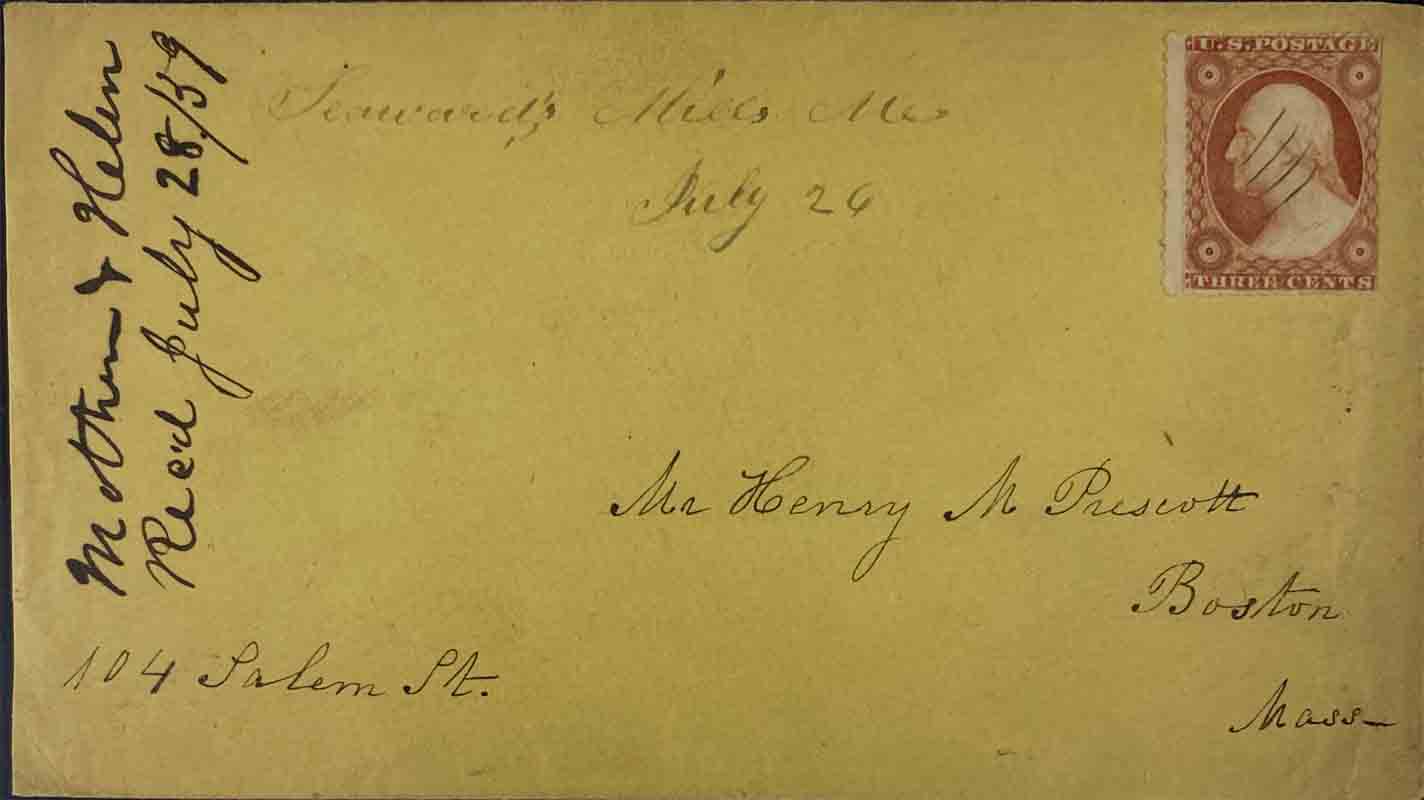 Mother & Helen
Rec'd July 28/59
Seaward's Mills Me
July 26
U.S. POSTAGE
THREE CENTS
Mr Henry M Prescott
Boston
Mass
104 Salem St.